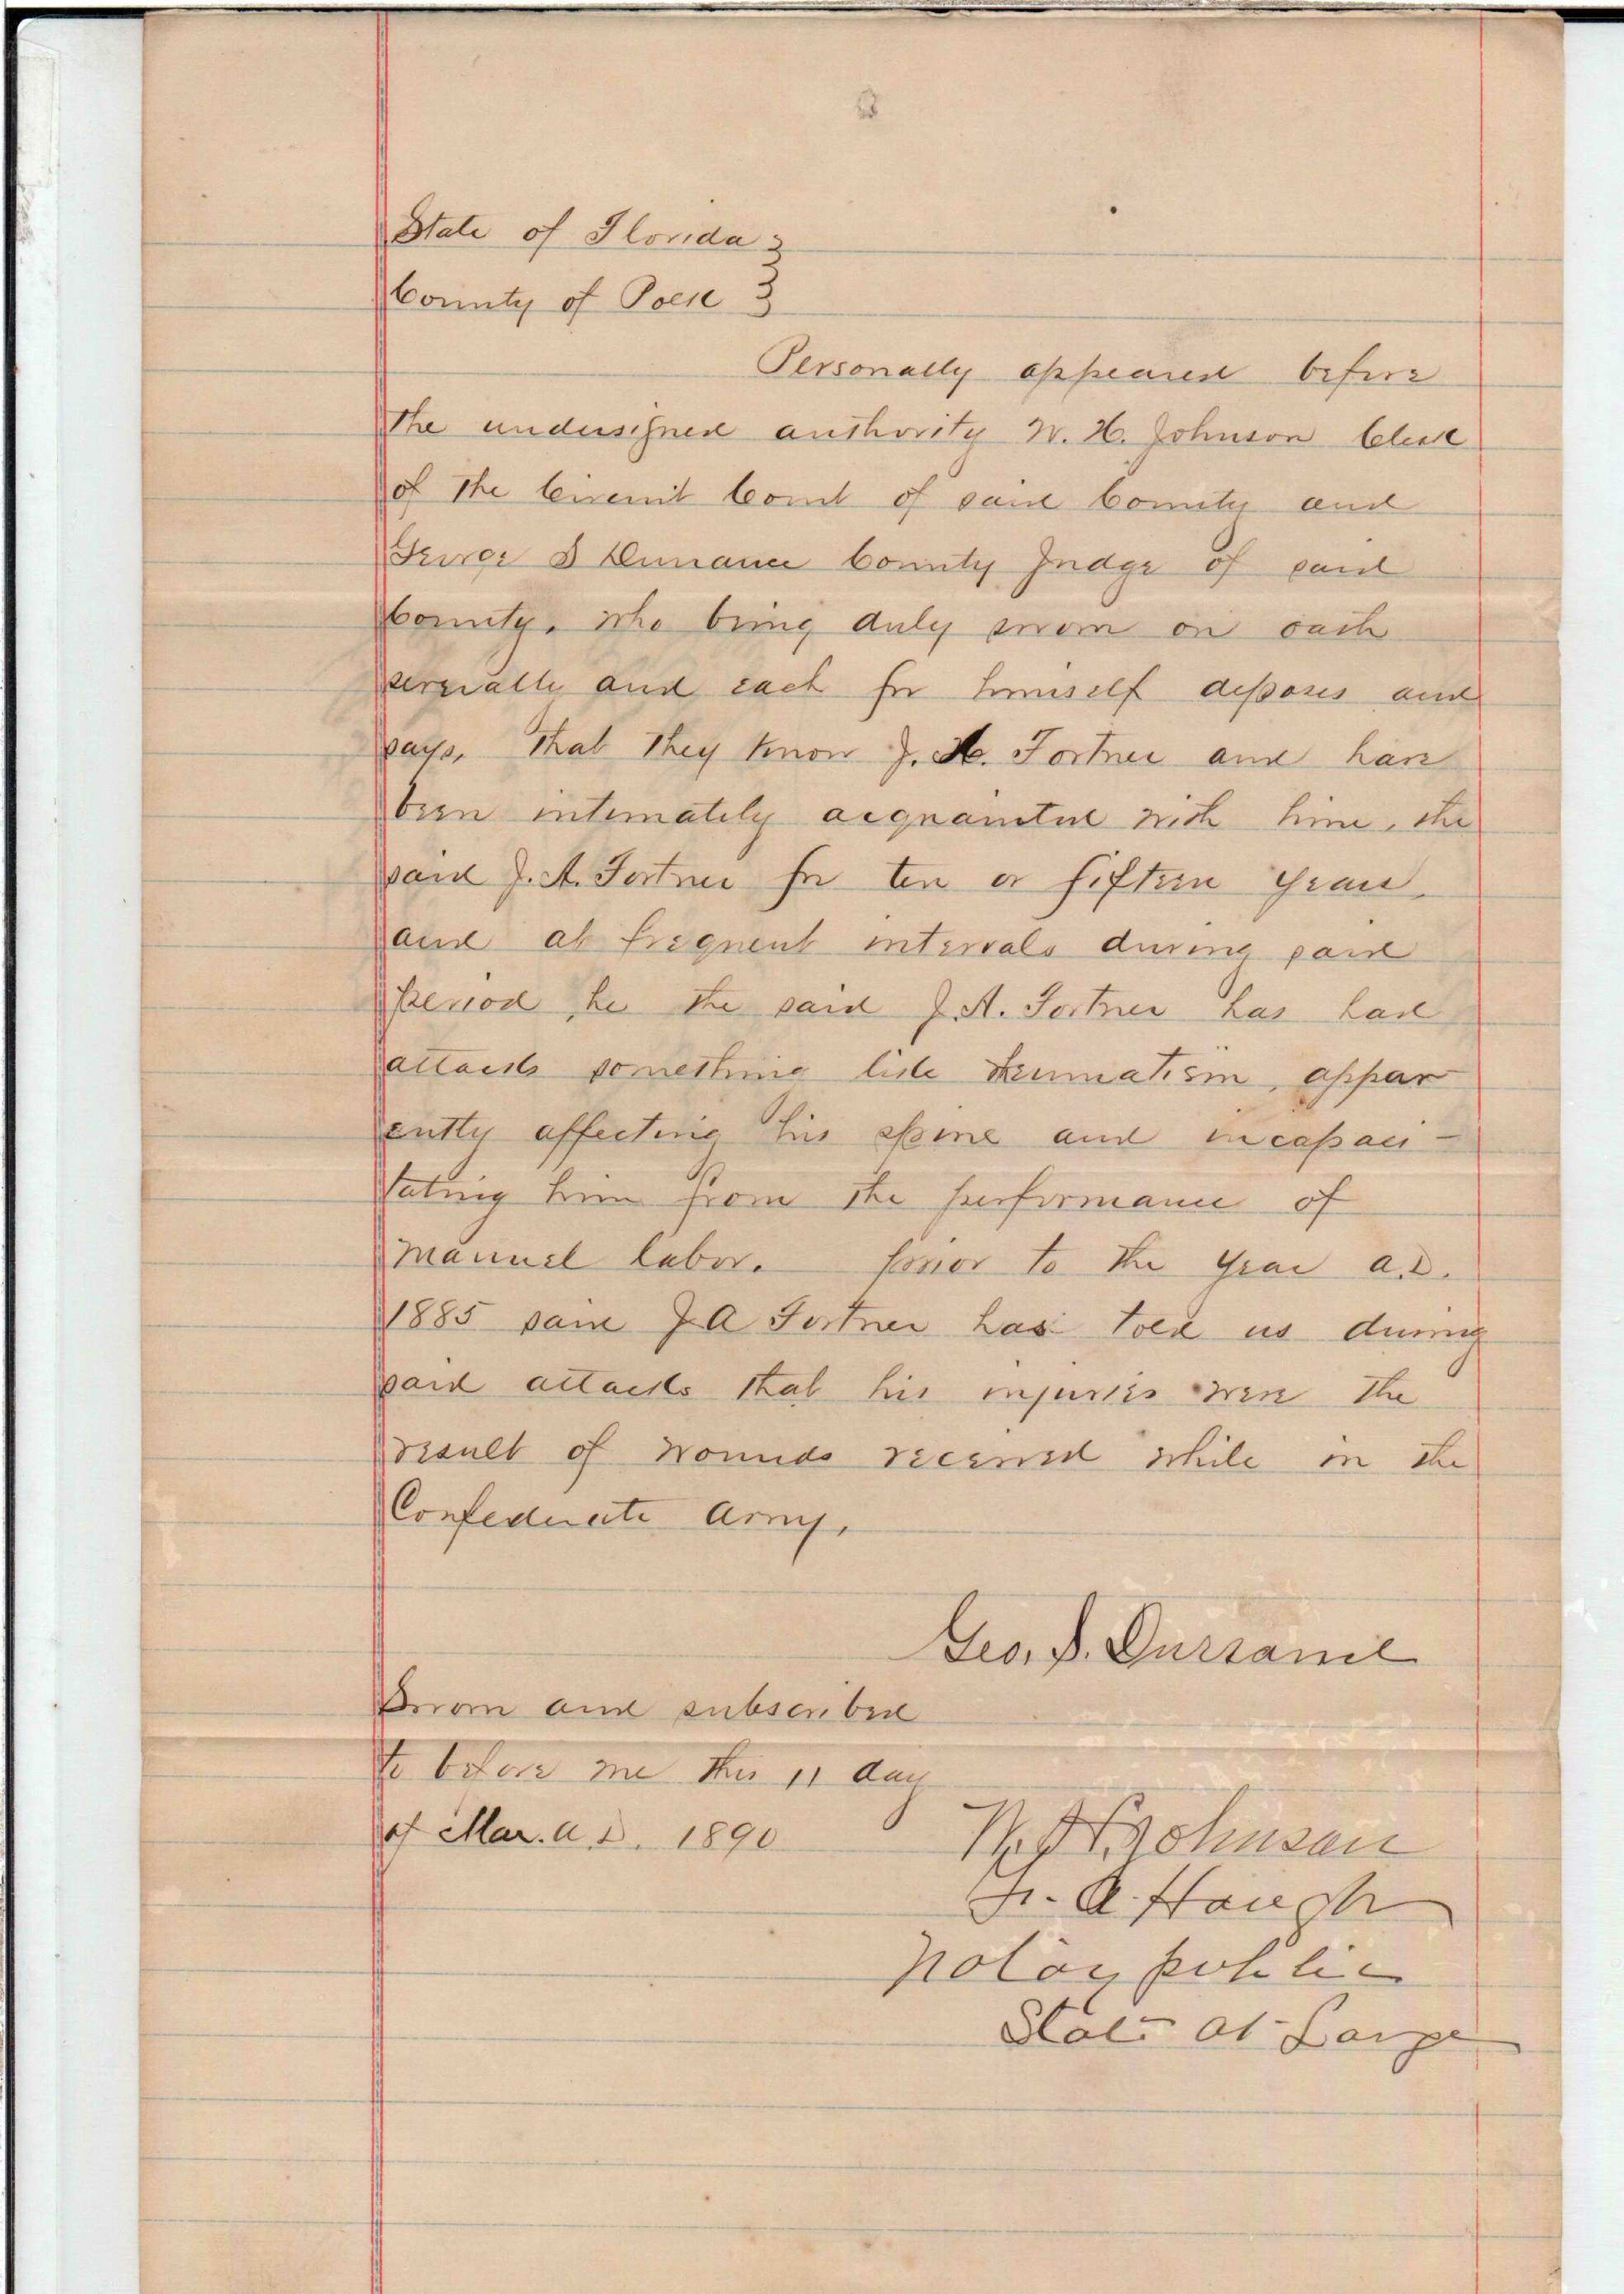 State of Florida }
County of Polk }
Personally appeared before
the undersigned authority W. H. Johnson Clerk
of the Circuit Court of said County and
George S Durrance County Judge of said
County, who being duly sworn on oath
severally and each for himself deposes and
says, that they know J. A. Fortner and have
been intimately acquainted with him, the
said J. A. Fortner for ten or fifteen years,
and at frequent intervals during said
period, he the said J. A. Fortner has had
attacks something like rheumatism, appar
ently affecting his spine and incapaci-
tating him from the performance of
manuel labor. prior to the year A.D.
1885 said J A Fortner has told us during
said attacks that his injuries were the
result of wounds received while in the
Confederate Army.
Geo. S. Durrance
Sworn and subscribed
to before me this 11 day
of Mar. A.D. 1890
W. H. Johnson
A. Hough
Notary public
State at Large